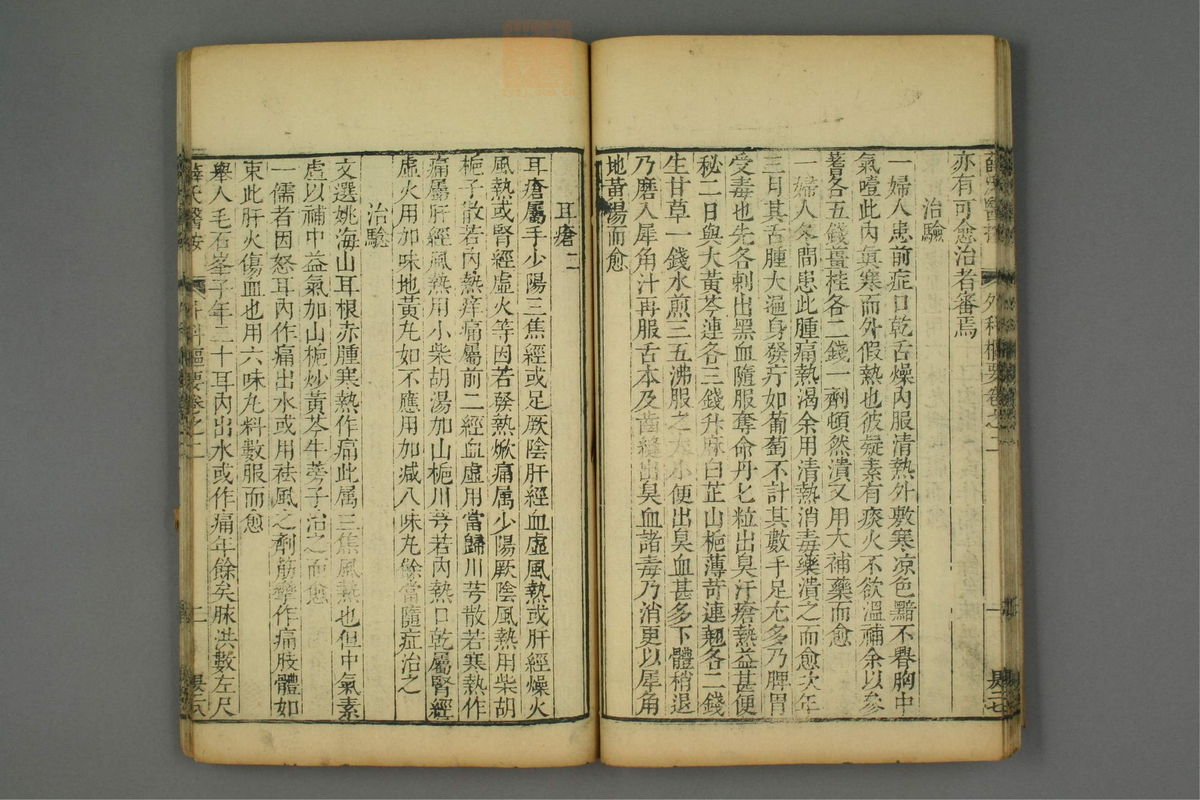 亦有可愈治者審焉
治驗
一婦人患前症口乾舌燥內服清熱外敷寒凉色黯不臖胸中
氣噎此內真寒而外假熱也彼疑素有痰火不欲溫補余以參
蓍各五錢薑桂各二錢一劑頓然潰又用大補藥而愈
一婦人冬間患此腫痛熱渴余用清熱消毒藥潰之而愈次年
三月其舌腫大遍身發疔如葡萄不計其數手足尤多乃脾胃
受毒也先各刺出黑血隨服奪命丹七粒出臭汗瘡熱益甚便
秘二日與大黃芩連各三錢升麻白芷山梔薄荷連翹各二錢
生甘草一錢水煎三五沸服之大小便出臭血甚多下體稍退
乃磨入犀角汁再服舌本及齒縫出臭血諸毒乃消更以犀角
地黃湯而愈
外科樞要卷之二
耳瘡二
耳瘡屬手少陽三焦經或足厥陰肝經血虛風熱或肝經燥火
風熱或腎經虛火等因若發熱焮痛属少陽厥陰風熱用柴胡
梔子散若內熱痒痛屬前二經血虛用當歸川芎散若寒熱作
痛屬肝經風熱用小柴胡湯加山梔川芎若內熱口乾屬腎經
虛火用加味地黃丸如不應用加减八味丸餘當隨症治之
治驗
文選姚海山耳根赤腫寒熱作痛此属三焦風熱也但中氣素
虛以補中益氣加山梔炒黃芩牛蒡子治之而愈
一儒者因怒耳內作痛出水或用祛風之劑筋攣作痛肢體如
束此肝火傷血也用六味丸料數服而愈
舉人毛石峯子年二十耳內出水或作痛年餘矣脉洪數左尺
薛氏醫按 外科樞要卷之二 二